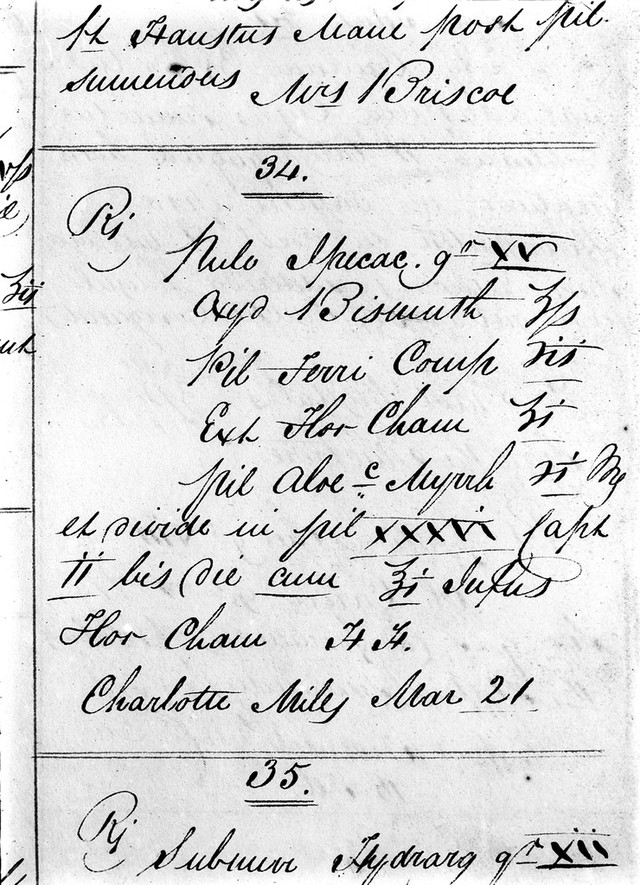 ft Haustus Mane post pil.
sumendus Mrs Briscoe
34.
Rj
Pulv Ipecac. gr XV
Oxyd Bismuth ʒſs
Pil Ferri Comp ʒiſs
Ext Flor Cham ʒi
Pil Aloe c Myrrh ʒi My
et divide in pil XXXVI Capt
II bis die cum ℥i Infus
Flor Cham H H.
Charlotte Miles Mar 21
35.
Rj
Submur Hydrarg gr xii